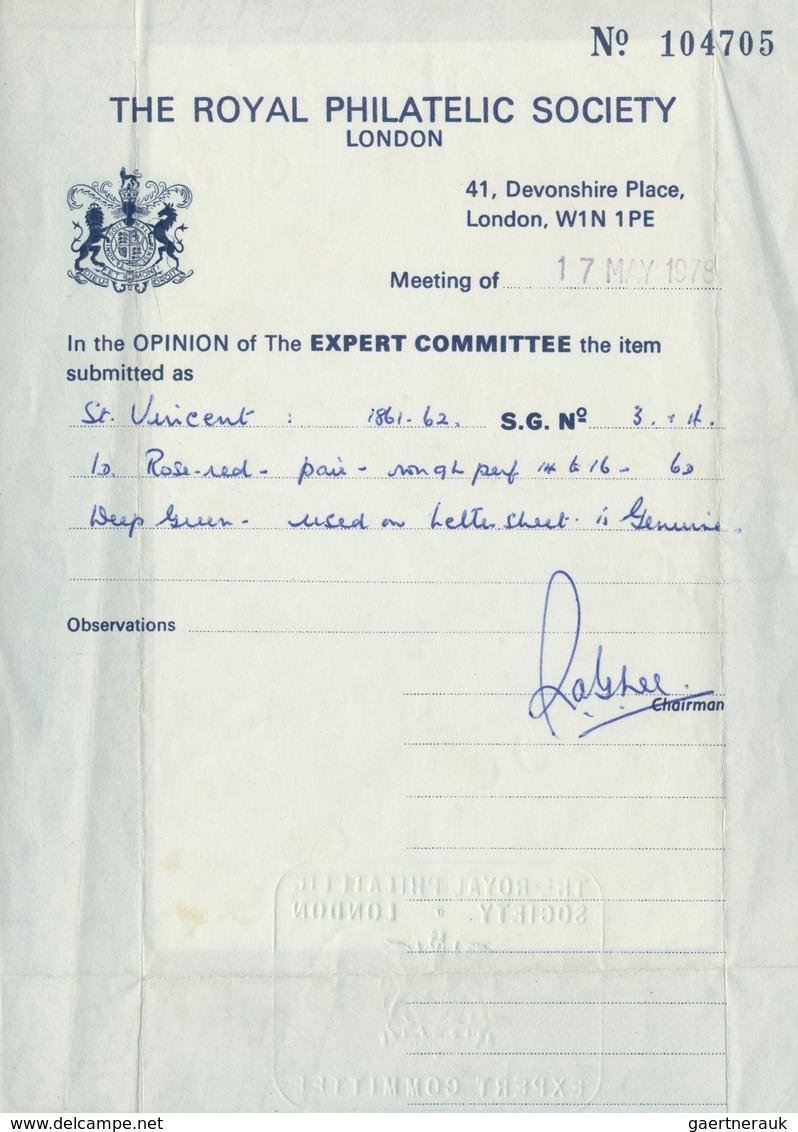 Nº 104705
THE ROYAL PHILATELIC SOCIETY
LONDON
41, Devonshire Place,
London, W1N 1PE
Meeting of 17 MAY 1978
In the OPINION of The EXPERT COMMITTEE the item
submitted as
St. Vincent : 1861-62. S.G. Nº 3. + 4.
1D. Rose-red - pair - rough perf 14 to 16 - 6D
Deep Green - used on letter sheet - is Genuine.
Observations
Chairman
THE ROYAL PHILATELIC
SOCIETY · LONDON
EXPERT COMMITTEE
gaertnerauk